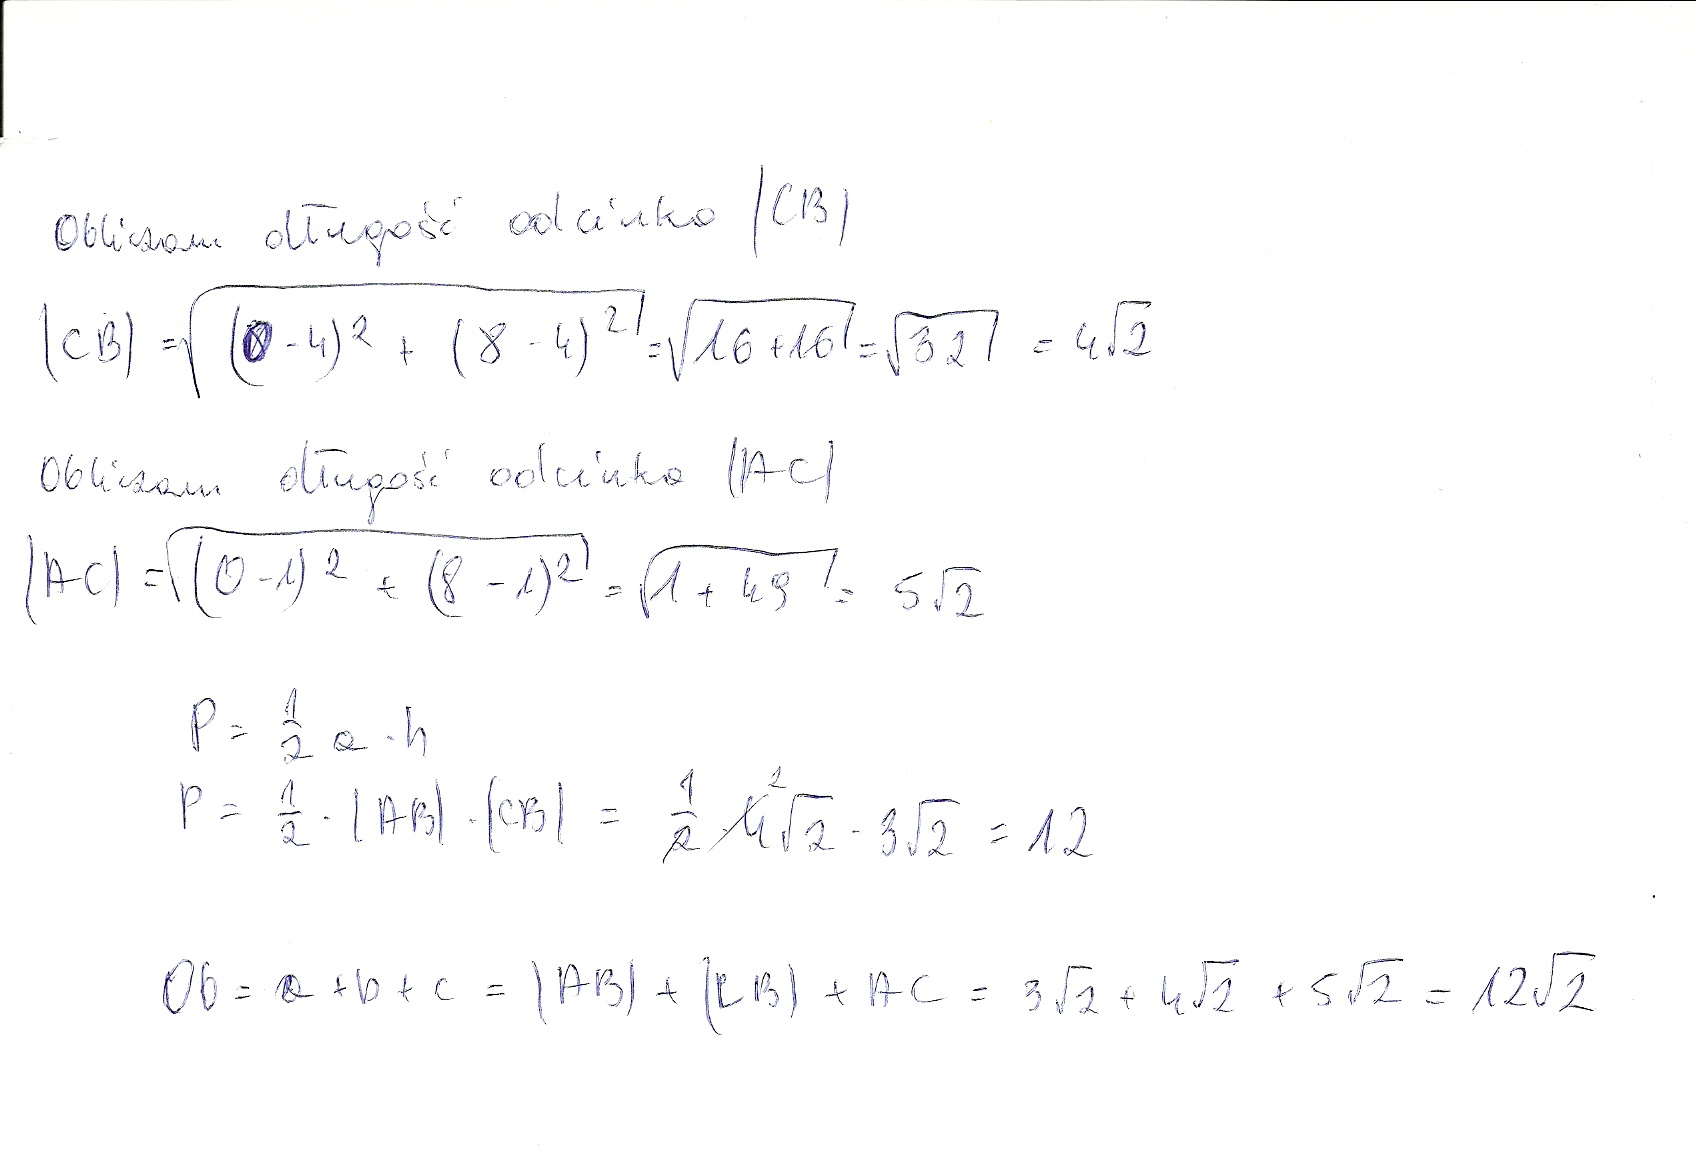 Obliczam długość odcinka |CB|
|CB| = √((0-4)² + (8-4)²) = √(16+16) = √32 = 4√2
Obliczam długość odcinka |AC|
|AC| = √((0-1)² + (8-1)²) = √(1+49) = 5√2
P = 1/2 a · h
P = 1/2 · |AB| · |CB| = 1/2 · 4² √2 · 3√2 = 12
Ob = a + b + c = |AB| + |CB| + AC = 3√2 + 4√2 + 5√2 = 12√2